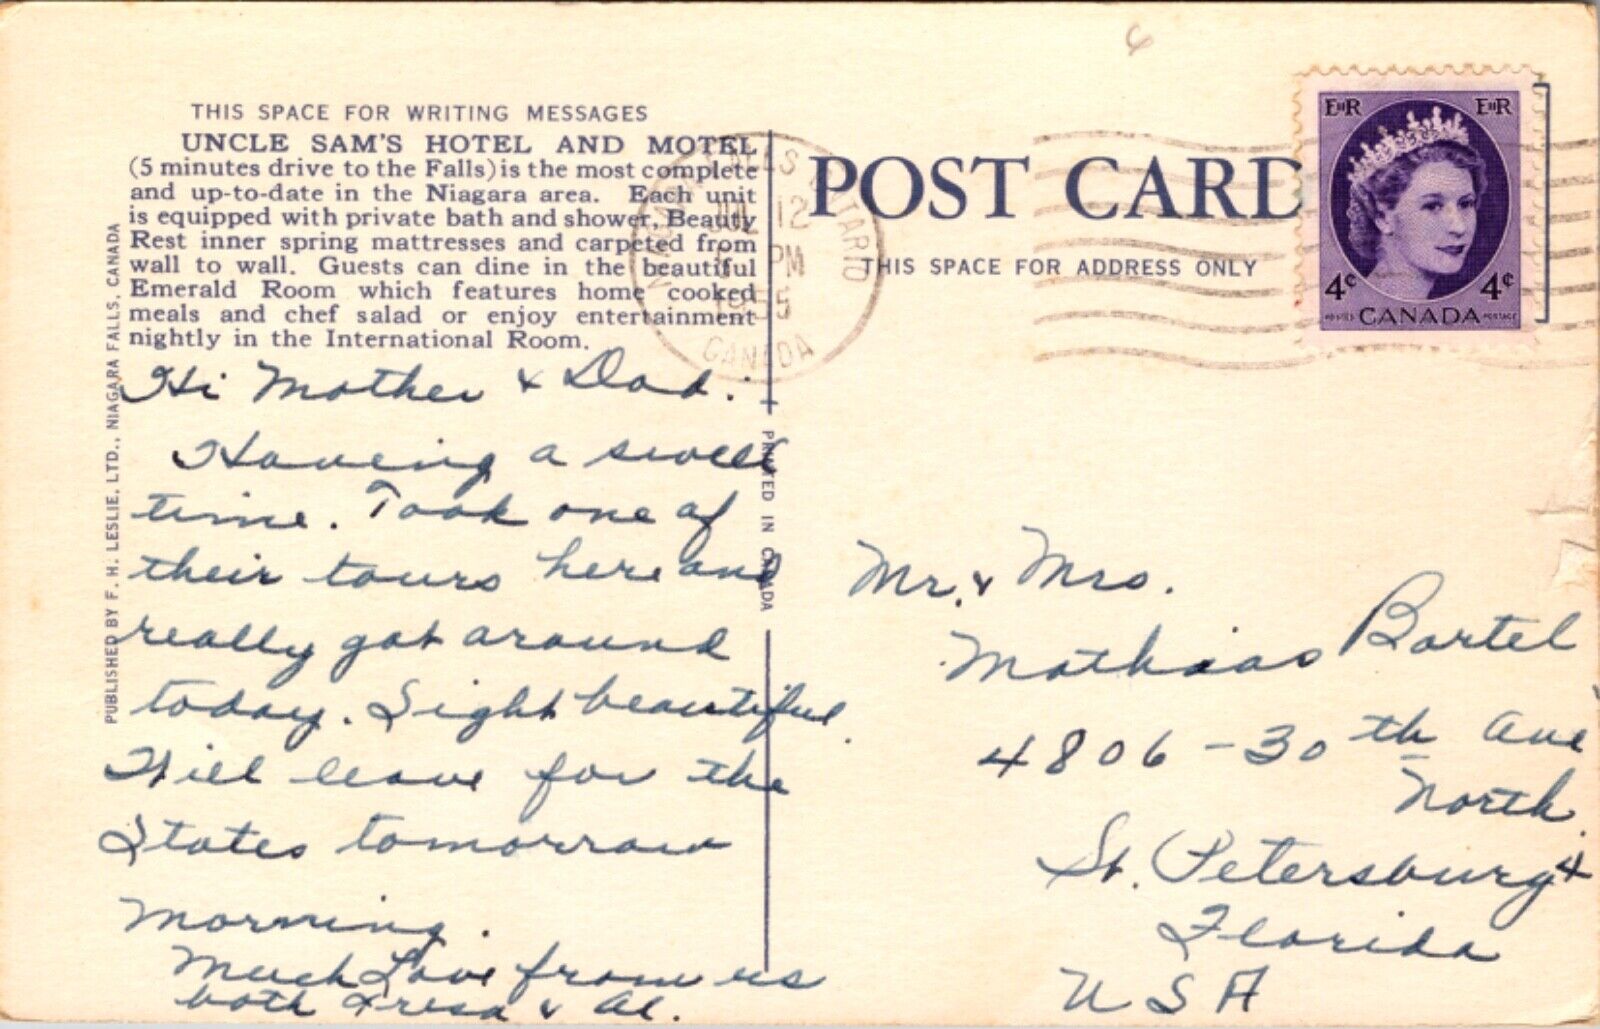 THIS SPACE FOR WRITING MESSAGES
UNCLE SAM'S HOTEL AND MOTEL
(5 minutes drive to the Falls) is the most complete
and up-to-date in the Niagara area. Each unit
is equipped with private bath and shower, Beauty
Rest inner spring mattresses and carpeted from
wall to wall. Guests can dine in the beautiful
Emerald Room which features home cooked
meals and chef salad or enjoy entertainment
nightly in the International Room.
Hi Mother & Dad.
Having a swell
time. Took one of
their tours here and
really got around
today. Sight beautiful.
Will leave for the
States tomorrow
morning.
Much Love from us
both & Al.
PUBLISHED BY F. H. LESLIE, LTD., NIAGARA FALLS, CANADA
PRINTED IN CANADA
NIAGARA FALLS ONTARIO
JUL 12
PM
1955
CANADA
POST CARD
THIS SPACE FOR ADDRESS ONLY
EIIR EIIR
4¢ 4¢
POSTES CANADA POSTAGE
Mr. & Mrs.
Mathias Bartel
4806-30th Ave
North.
St. Petersburg 4
Florida
USA